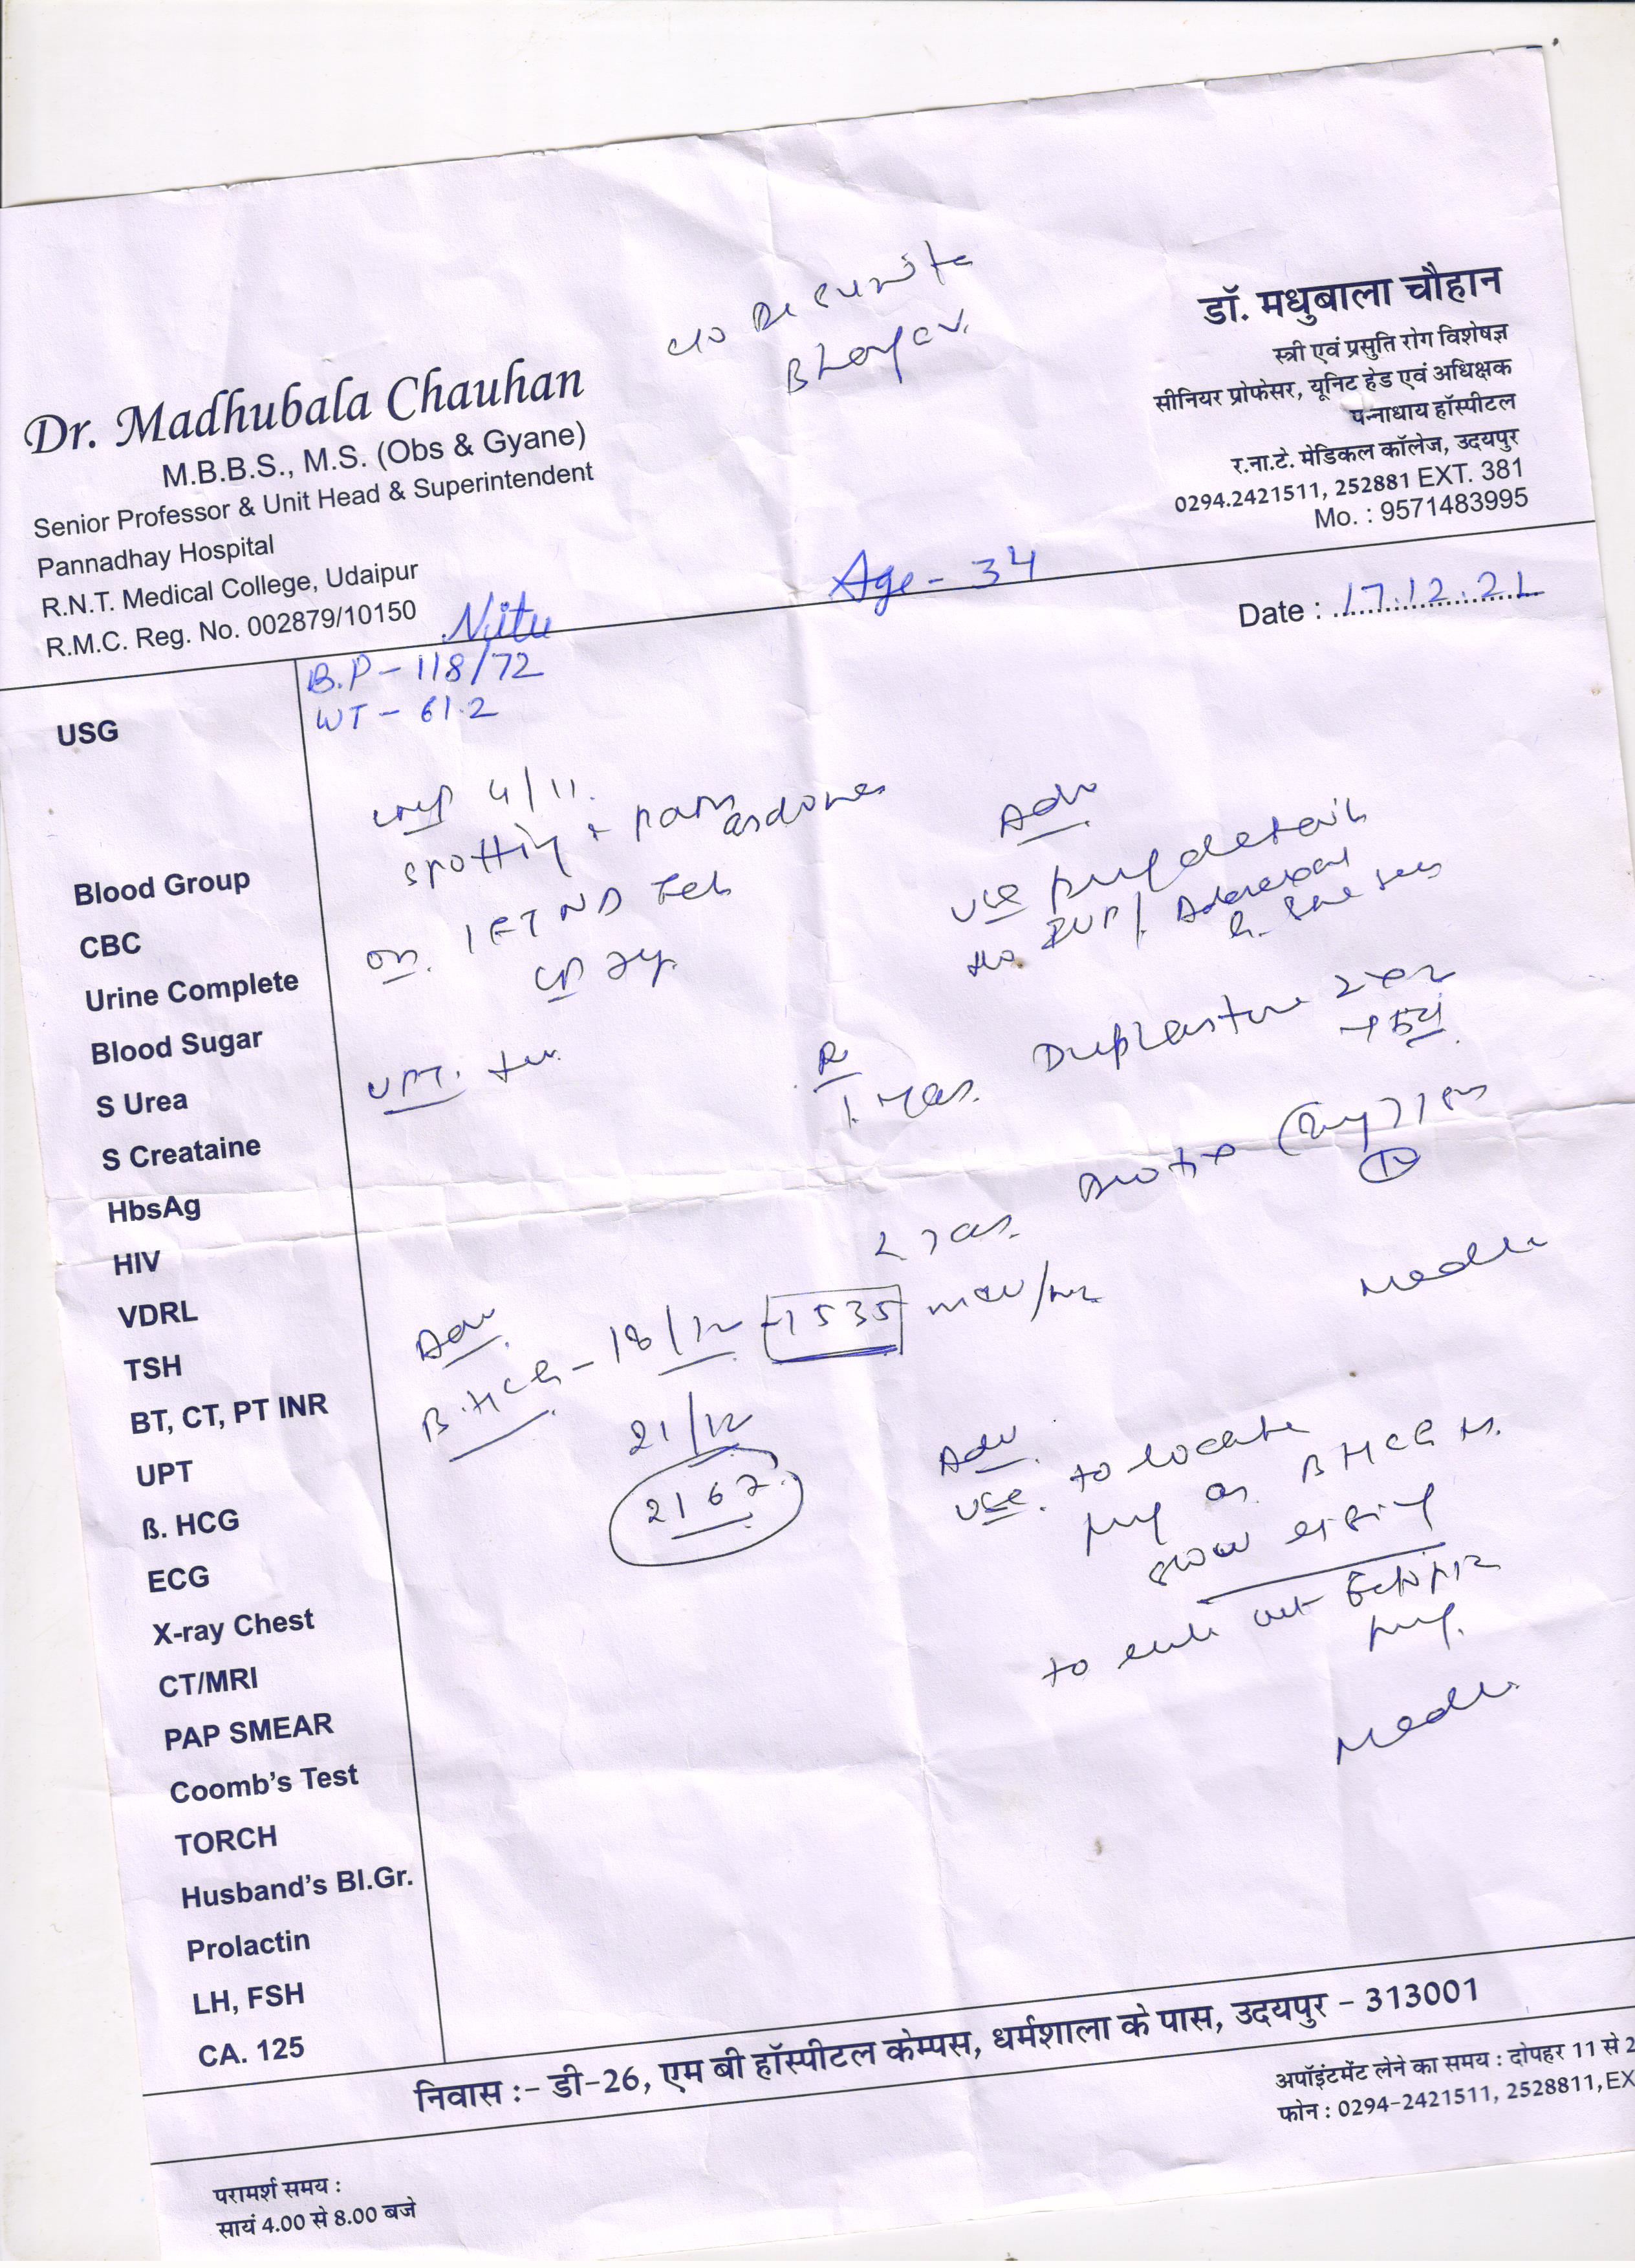 c/o
Bhargav.
Dr. Madhubala Chauhan
M.B.B.S., M.S. (Obs & Gyane)
Senior Professor & Unit Head & Superintendent
Pannadhay Hospital
R.N.T. Medical College, Udaipur
R.M.C. Reg. No. 002879/10150
डॉ. मधुबाला चौहान
स्त्री एवं प्रसुति रोग विशेषज्ञ
सीनियर प्रोफेसर, यूनिट हेड एवं अधिक्षक
पन्नाधाय हॉस्पीटल
र.ना.टे. मेडिकल कॉलेज, उदयपुर
0294.2421511, 252881 EXT. 381
Mo. : 9571483995
Nitu
Age - 34
Date : 17.12.21
B.P - 118/72
WT - 61.2
USG
Blood Group
CBC
Urine Complete
Blood Sugar
S Urea
S Creataine
HbsAg
HIV
VDRL
TSH
BT, CT, PT INR
UPT
ß. HCG
ECG
X-ray Chest
CT/MRI
PAP SMEAR
Coomb's Test
TORCH
Husband's Bl.Gr.
Prolactin
LH, FSH
CA. 125
LMP 4/11.
spotting + pain
UPT.
Adv
USG
R
1.
Duphaston
2
Adv
B.HCG - 18/12 - 1535 miu/ml
21/12
2167
Adv
USG. to locate
preg as B HCG is
slow rising
to rule out Ectopic
preg.
निवास :- डी-26, एम बी हॉस्पीटल केम्पस, धर्मशाला के पास, उदयपुर - 313001
अपॉइंटमेंट लेने का समय : दोपहर 11 से 2
फोन : 0294-2421511, 2528811, EX
परामर्श समय :
सायं 4.00 से 8.00 बजे